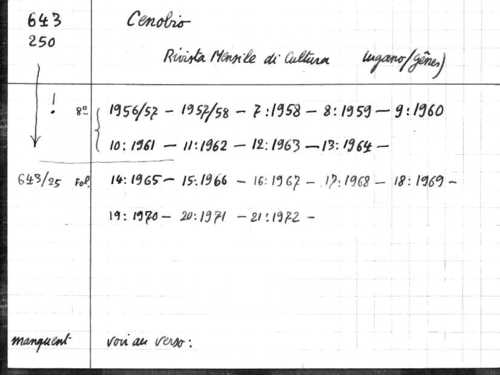 643 Cenobio
250
Rivista Mensile di Cultura Lugano/Gênes)
! 8º 1956/57 – 1957/58 – 7:1958 – 8:1959 – 9:1960
10:1961 – 11:1962 – 12:1963 – 13:1964 –
643/25 Fol. 14:1965 – 15:1966 – 16:1967 – 17:1968 – 18:1969 –
19:1970 – 20:1971 – 21:1972 –
manquent voir au verso: